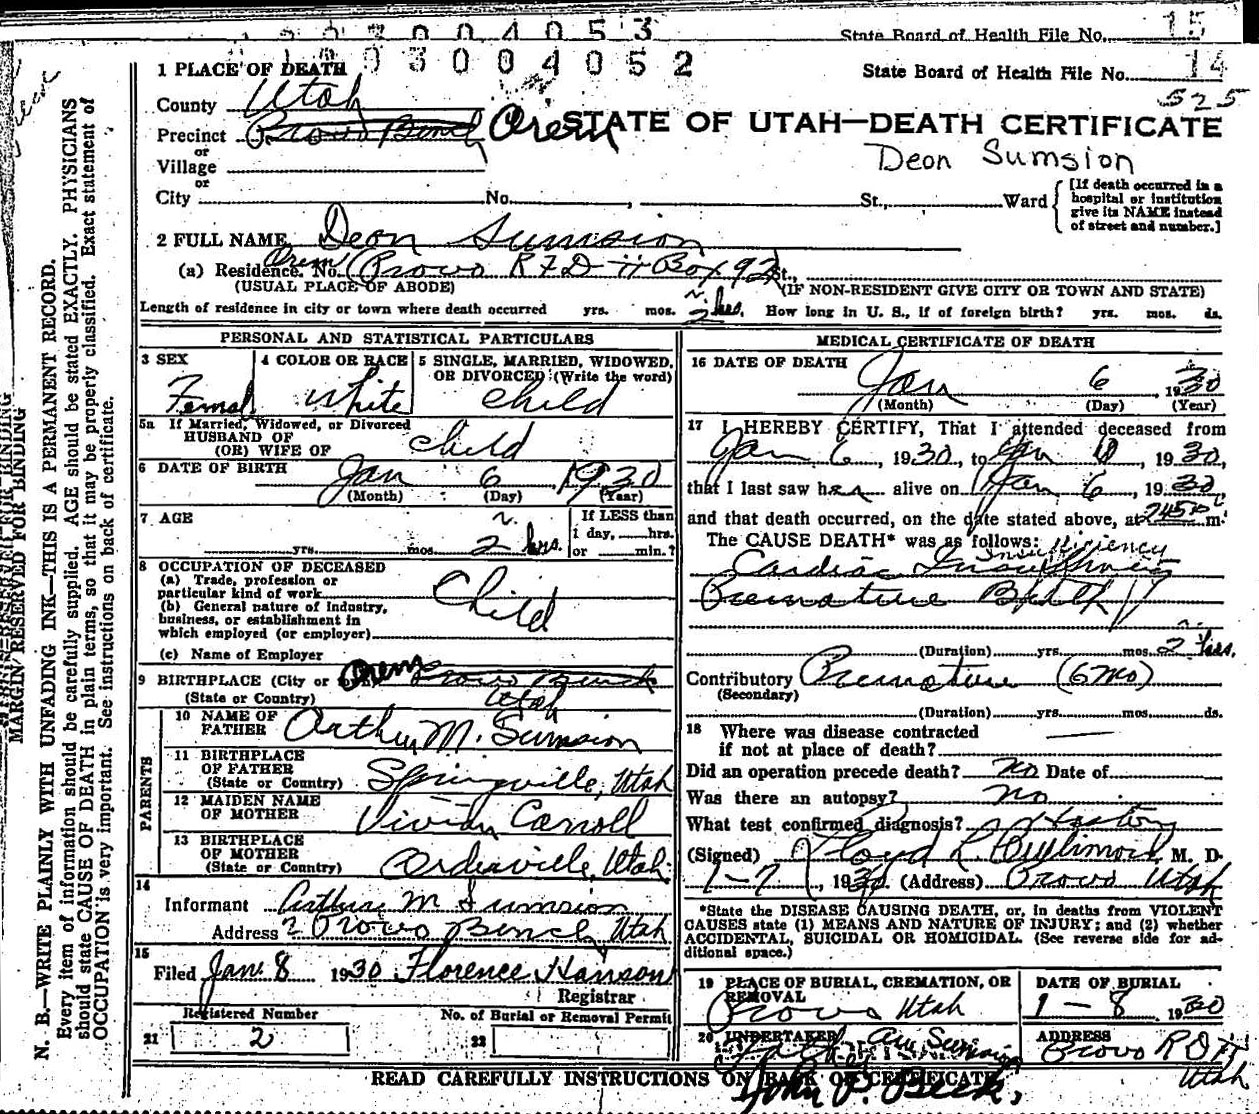 1 2 3 0 0 4 0 5 3 State Board of Health File No. 15
1 9 3 0 0 4 0 5 2 State Board of Health File No. 14
525
1 PLACE OF DEATH
County Utah
Precinct Provo Bench Orem STATE OF UTAH—DEATH CERTIFICATE
or
Village Deon Sumsion
or
City No. , St., Ward [If death occurred in a hospital or institution give its NAME instead of street and number.]
2 FULL NAME Deon Sumsion
(a) Residence. No. Orem Provo R F D # Box 92 St.,
(USUAL PLACE OF ABODE) (IF NON-RESIDENT GIVE CITY OR TOWN AND STATE)
Length of residence in city or town where death occurred yrs. mos. 2 hrs. How long in U. S., if of foreign birth? yrs. mos. ds.
PERSONAL AND STATISTICAL PARTICULARS
3 SEX 4 COLOR OR RACE 5 SINGLE, MARRIED, WIDOWED, OR DIVORCED (Write the word)
Femal white child
5a If Married, Widowed, or Divorced
HUSBAND OF
(OR) WIFE OF child
6 DATE OF BIRTH Jan 6 1930
(Month) (Day) (Year)
7 AGE If LESS than
yrs. mos. 2 hrs. 1 day, hrs.
or min.?
8 OCCUPATION OF DECEASED
(a) Trade, profession or
particular kind of work Child
(b) General nature of Industry,
business, or establishment in
which employed (or employer)
(c) Name of Employer
9 BIRTHPLACE (City or Orem Provo Bench
(State or Country) Utah
PARENTS
10 NAME OF
FATHER Arthur M. Sumsion
11 BIRTHPLACE
OF FATHER
(State or Country) Springville, Utah
12 MAIDEN NAME
OF MOTHER Vivian Carroll
13 BIRTHPLACE
OF MOTHER
(State or Country) Orderville, Utah
14
Informant Arthur M Sumsion
Address 2 Provo Bench Utah
15
Filed Jan. 8 1930 Florence Hanson
Registrar
Registered Number No. of Burial or Removal Permit
21 2 22 1
MEDICAL CERTIFICATE OF DEATH
16 DATE OF DEATH Jan 6, 1930
(Month) (Day) (Year)
17 I HEREBY CERTIFY, That I attended deceased from
Jan 6, 1930, to Jan , 1930,
that I last saw her alive on Jan 6, 1930
and that death occurred, on the date stated above, at 745 m.
The CAUSE DEATH* was as follows:
Insufficiency
Cardiac Insufficiency
Premature Birth
(Duration) yrs. mos. 2 hrs.
Contributory Premature (6 mo)
(Secondary)
(Duration) yrs. mos. ds.
18 Where was disease contracted
if not at place of death?
Did an operation precede death? no Date of
Was there an autopsy? no
What test confirmed diagnosis? History
(Signed) Lloyd L. M. D.
1-7, 1930 (Address) Provo Utah
*State the DISEASE CAUSING DEATH, or, in deaths from VIOLENT
CAUSES state (1) MEANS AND NATURE OF INJURY; and (2) whether
ACCIDENTAL, SUICIDAL OR HOMICIDAL. (See reverse side for ad-
ditional space.)
19 PLACE OF BURIAL, CREMATION, OR REMOVAL DATE OF BURIAL
Provo Utah 1 - 8 1930
20 UNDERTAKER ADDRESS
Sumsion Provo R D
Utah
John P. Beck.
READ CAREFULLY INSTRUCTIONS ON BACK OF CERTIFICATE
MARGIN RESERVED FOR BINDING
N. B.—WRITE PLAINLY WITH UNFADING INK—THIS IS A PERMANENT RECORD.
Every item of information should be carefully supplied. AGE should be stated EXACTLY. PHYSICIANS
should state CAUSE OF DEATH in plain terms, so that it may be properly classified. Exact statement of
OCCUPATION is very important. See instructions on back of certificate.